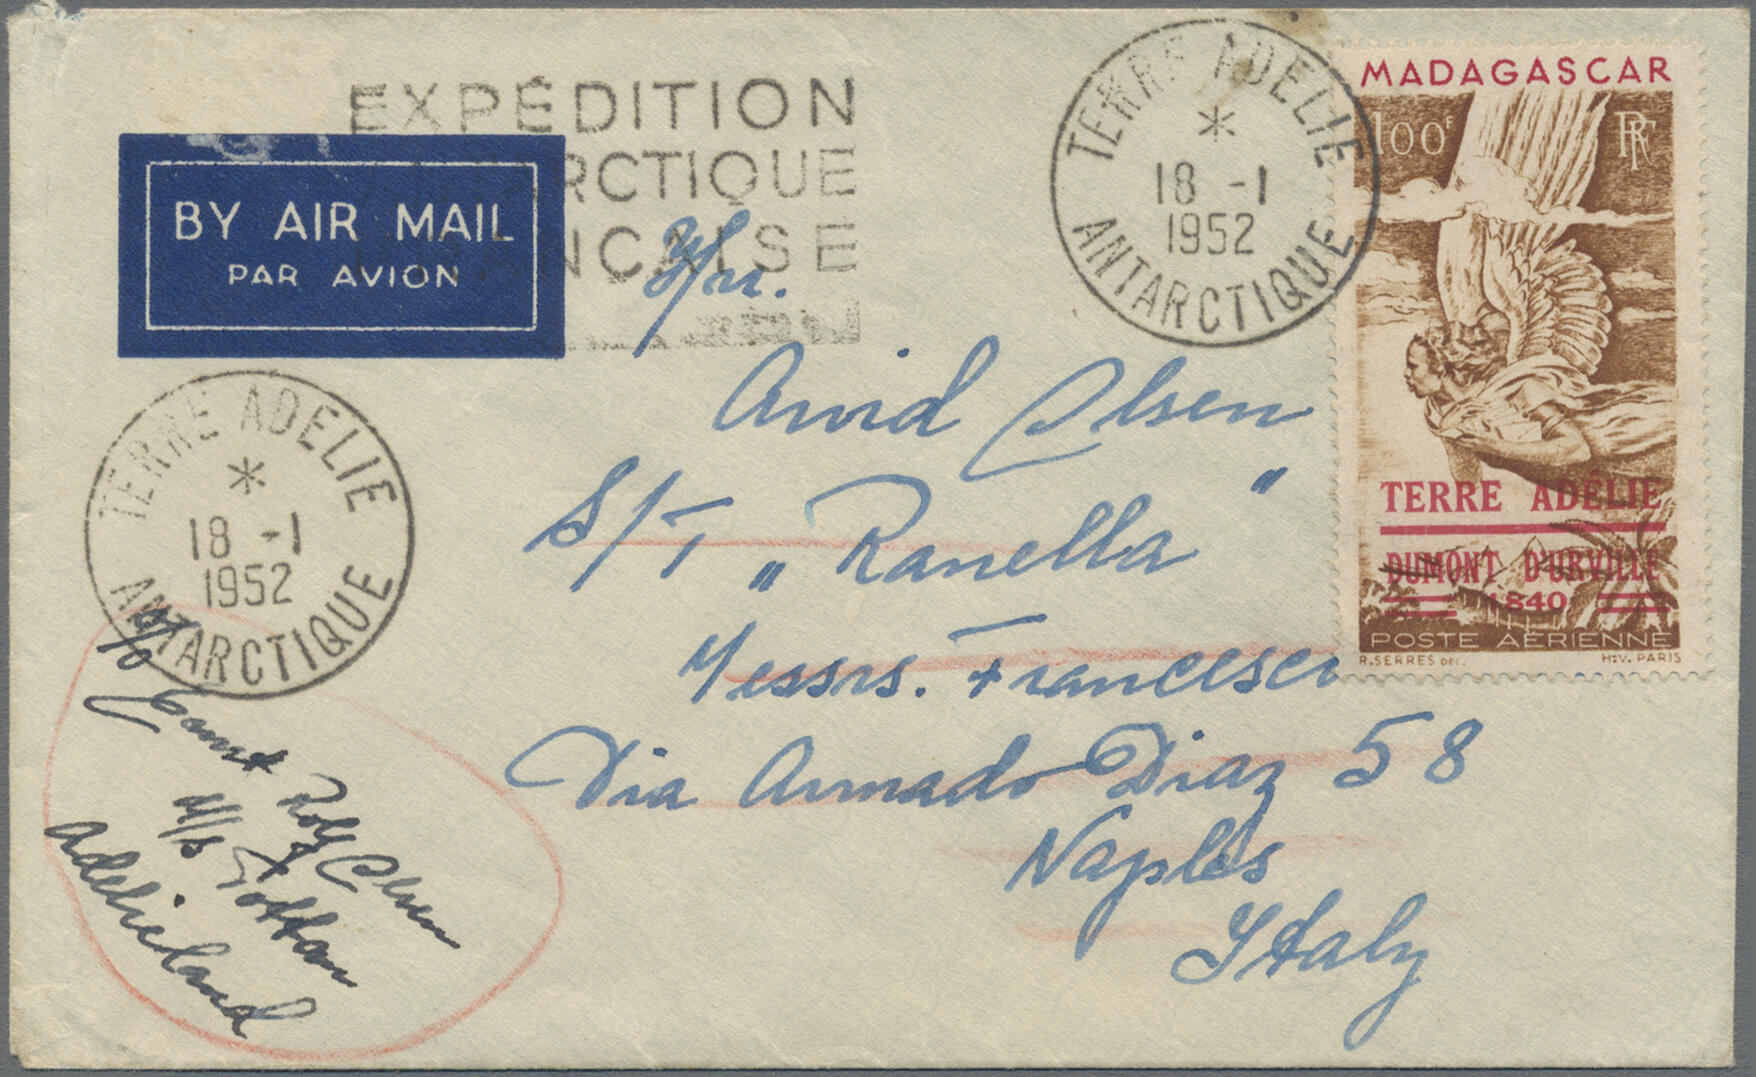 EXPÉDITION
RCTIQUE
NÇAISE
BY AIR MAIL
PAR AVION
TERRE ADELIE
18 -1
1952
ANTARCTIQUE
MADAGASCAR
100F RF
TERRE ADÉLIE
DUMONT D'URVILLE
1840
POSTE AÉRIENNE
R. SERRES DEL. H.V. PARIS
Arvid Olsen
S/T „Ranella"
Messrs. Francesco
Via Armado Diaz 58
Naples
Italy
TERRE ADELIE
18 -1
1952
ANTARCTIQUE
Rolf Olsen
M/S Tottan
Adelieland